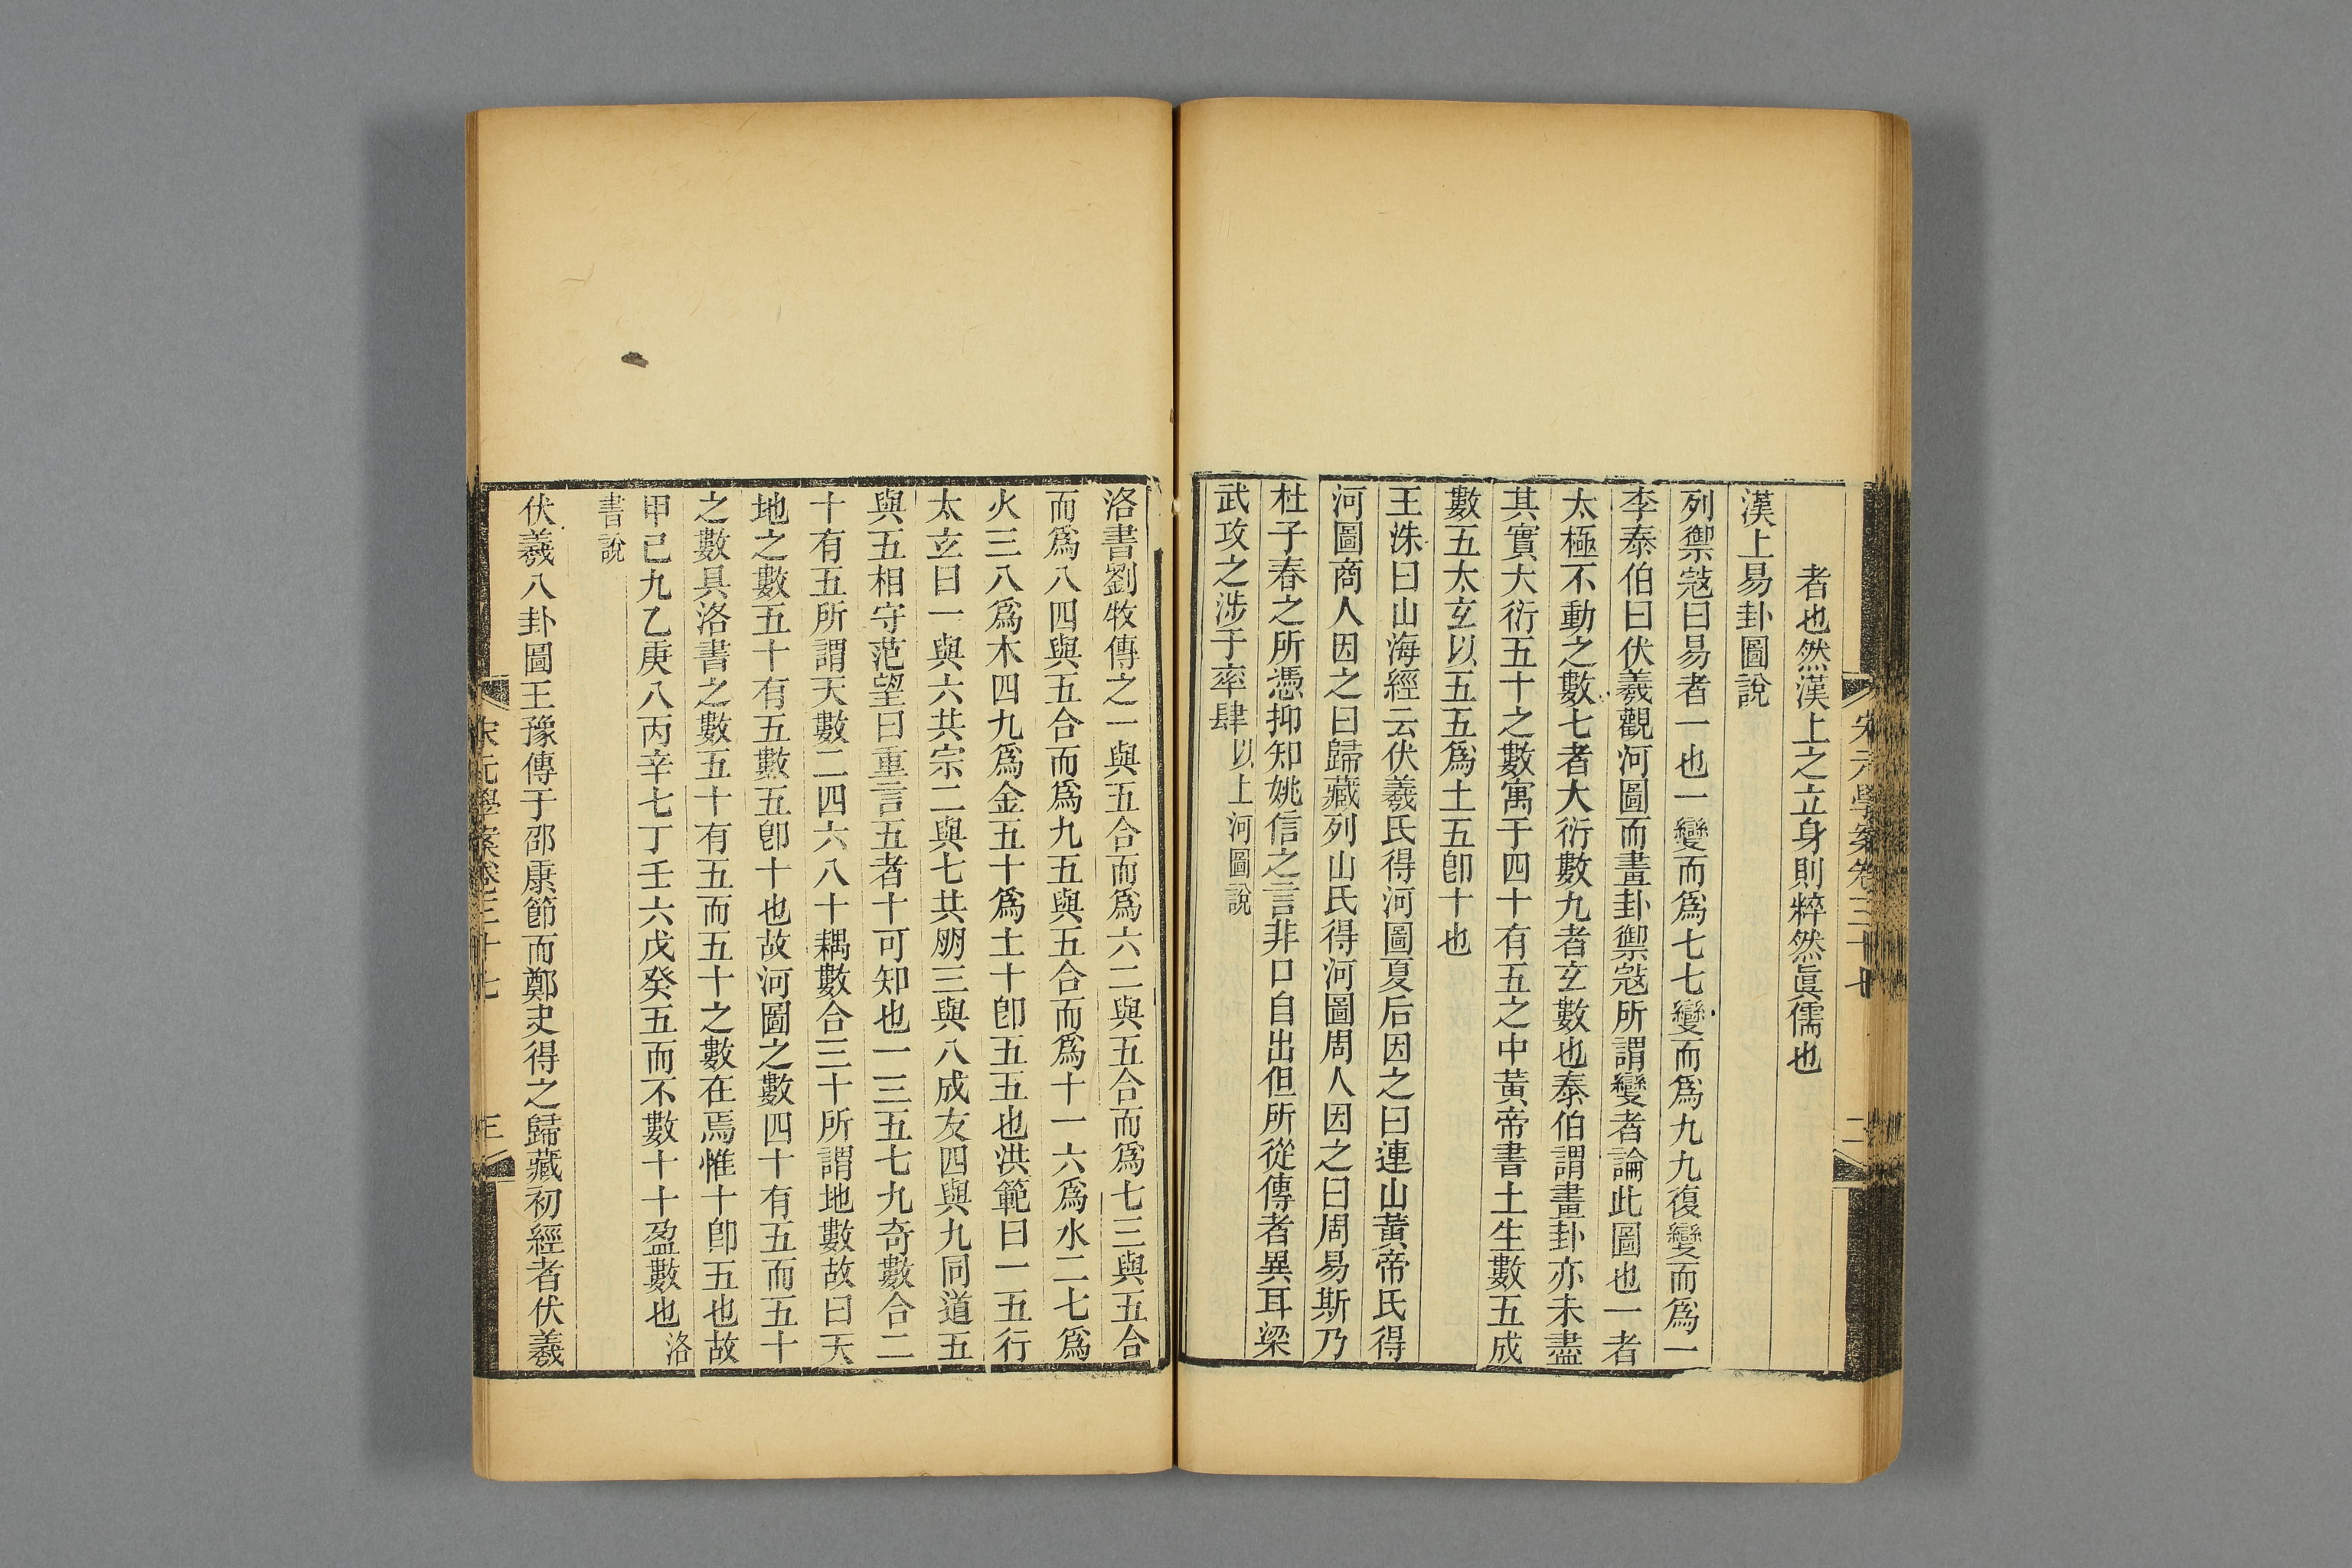 宋元學案卷三十七
二
者也然漢上之立身則粹然眞儒也
漢上易卦圖說
列禦㓂曰易者一也一變而爲七七變而爲九九復變而爲一
李泰伯曰伏羲觀河圖而畫卦禦㓂所謂變者論此圖也一者
太極不動之數七者大衍數九者玄數也泰伯謂畫卦亦未盡
其實大衍五十之數寓于四十有五之中黃帝書土生數五成
數五太玄以五五爲土五卽十也
王洙曰山海經云伏羲氏得河圖夏后因之曰連山黃帝氏得
河圖商人因之曰歸藏列山氏得河圖周人因之曰周易斯乃
杜子春之所憑抑知姚信之言非口自出但所從傳者異耳梁
武攻之涉于率肆以上河圖說
洛書劉牧傳之一與五合而爲六二與五合而爲七三與五合
而爲八四與五合而爲九五與五合而爲十一六爲水二七爲
火三八爲木四九爲金五十爲土十卽五五也洪範曰一五行
太玄曰一與六共宗二與七共朋三與八成友四與九同道五
與五相守范望曰重言五者十可知也一三五七九奇數合二
十有五所謂天數二四六八十耦數合三十所謂地數故曰天
地之數五十有五數五卽十也故河圖之數四十有五而五十
之數具洛書之數五十有五而五十之數在焉惟十卽五也故
甲己九乙庚八丙辛七丁壬六戊癸五而不數十十盈數也洛
書說
伏羲八卦圖王豫傳于邵康節而鄭夬得之歸藏初經者伏羲
宋元學案卷三十七
三